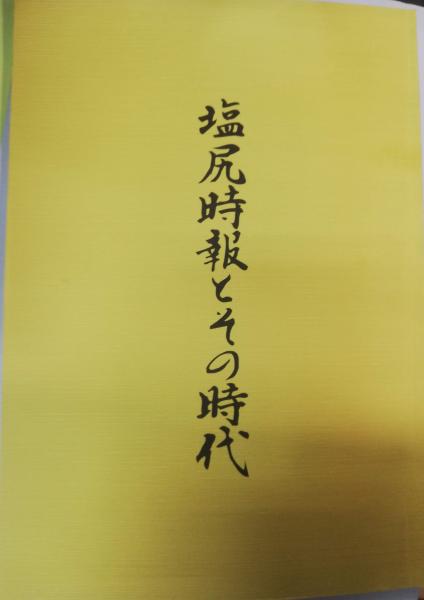 塩尻時報とその時代